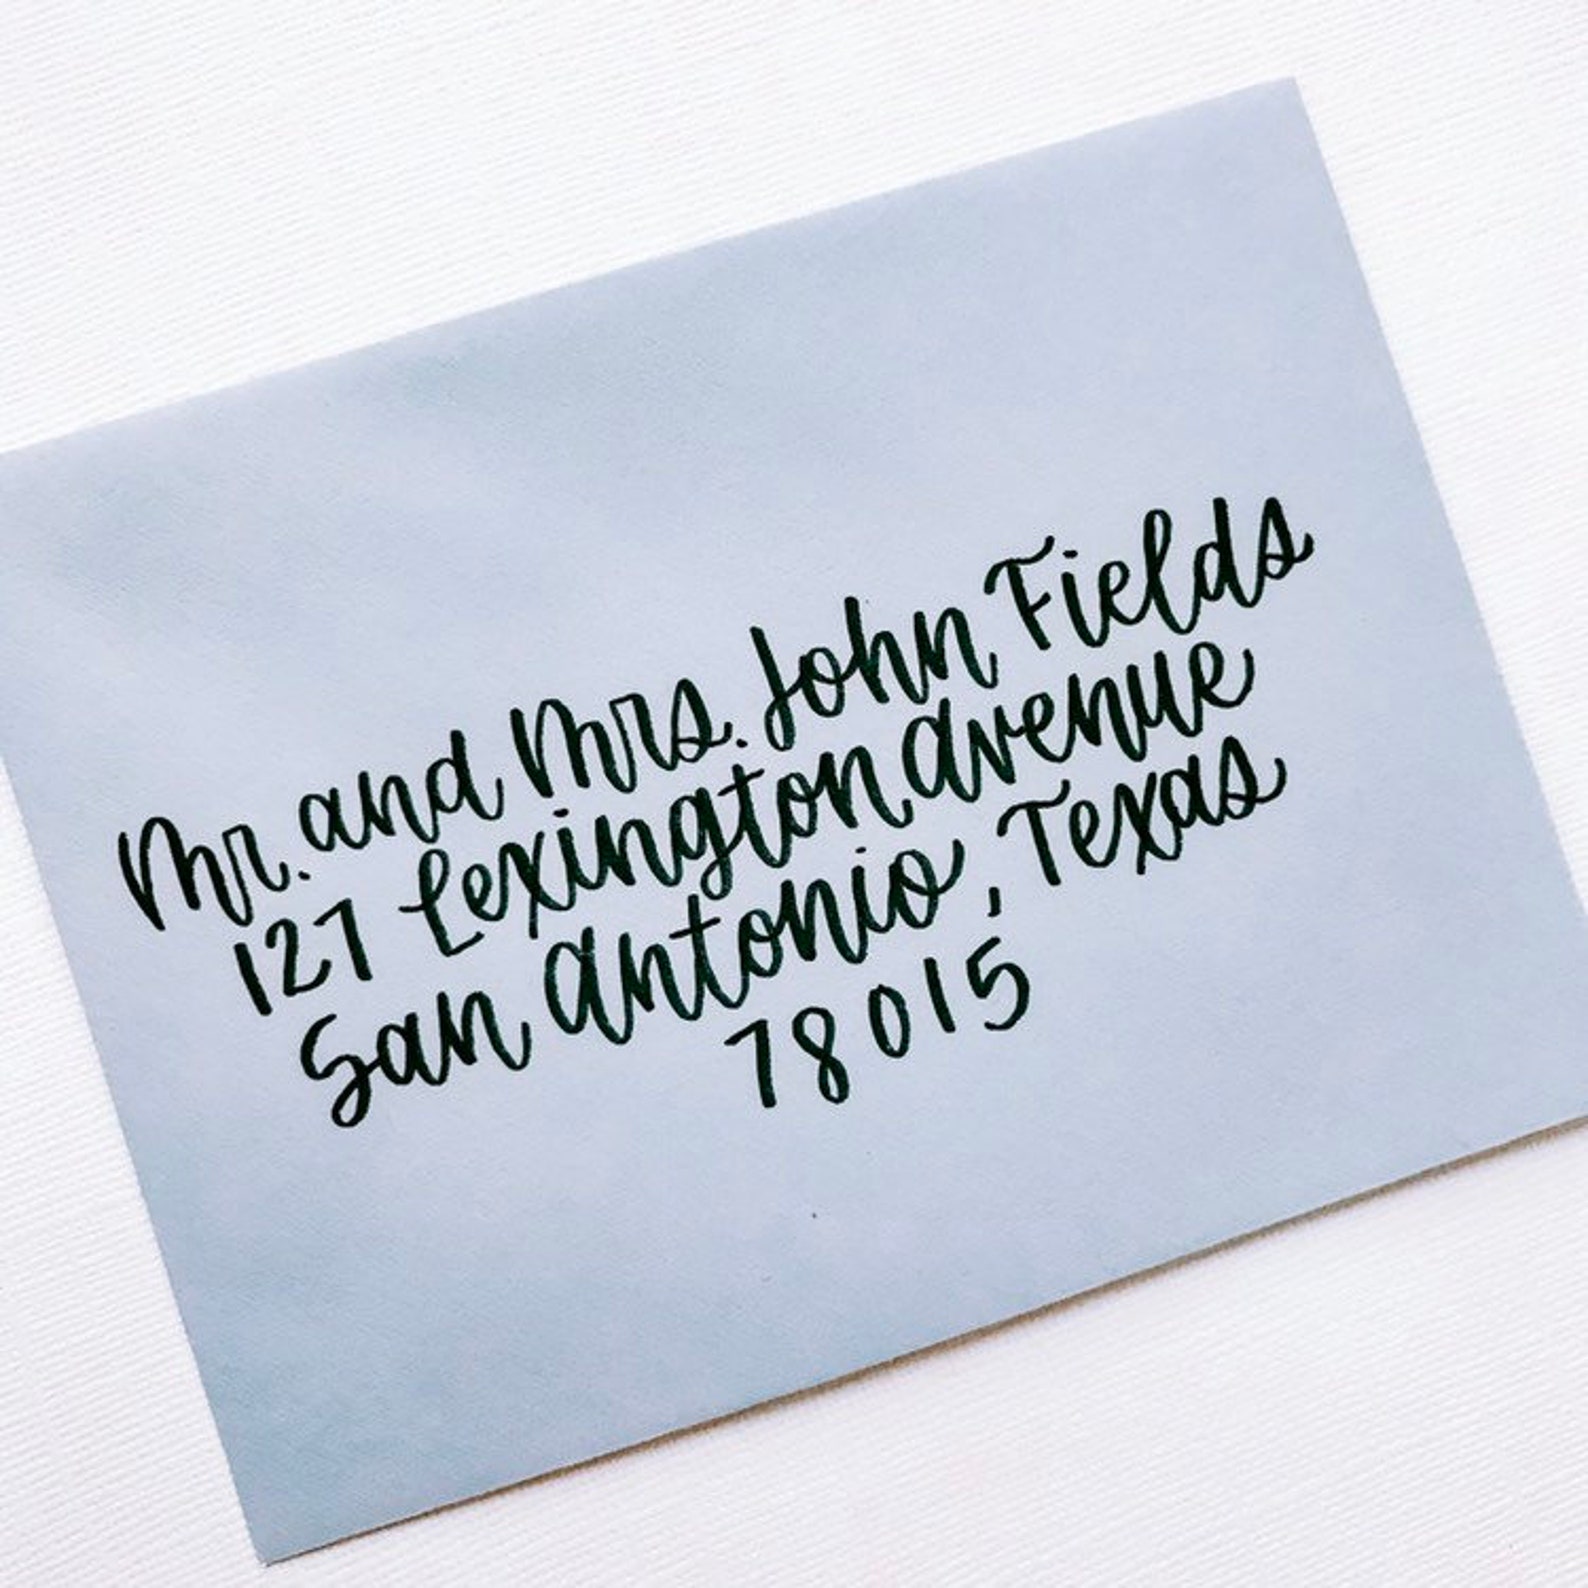 Mr. and Mrs. John Fields
127 Lexington Avenue
San Antonio, Texas
78015